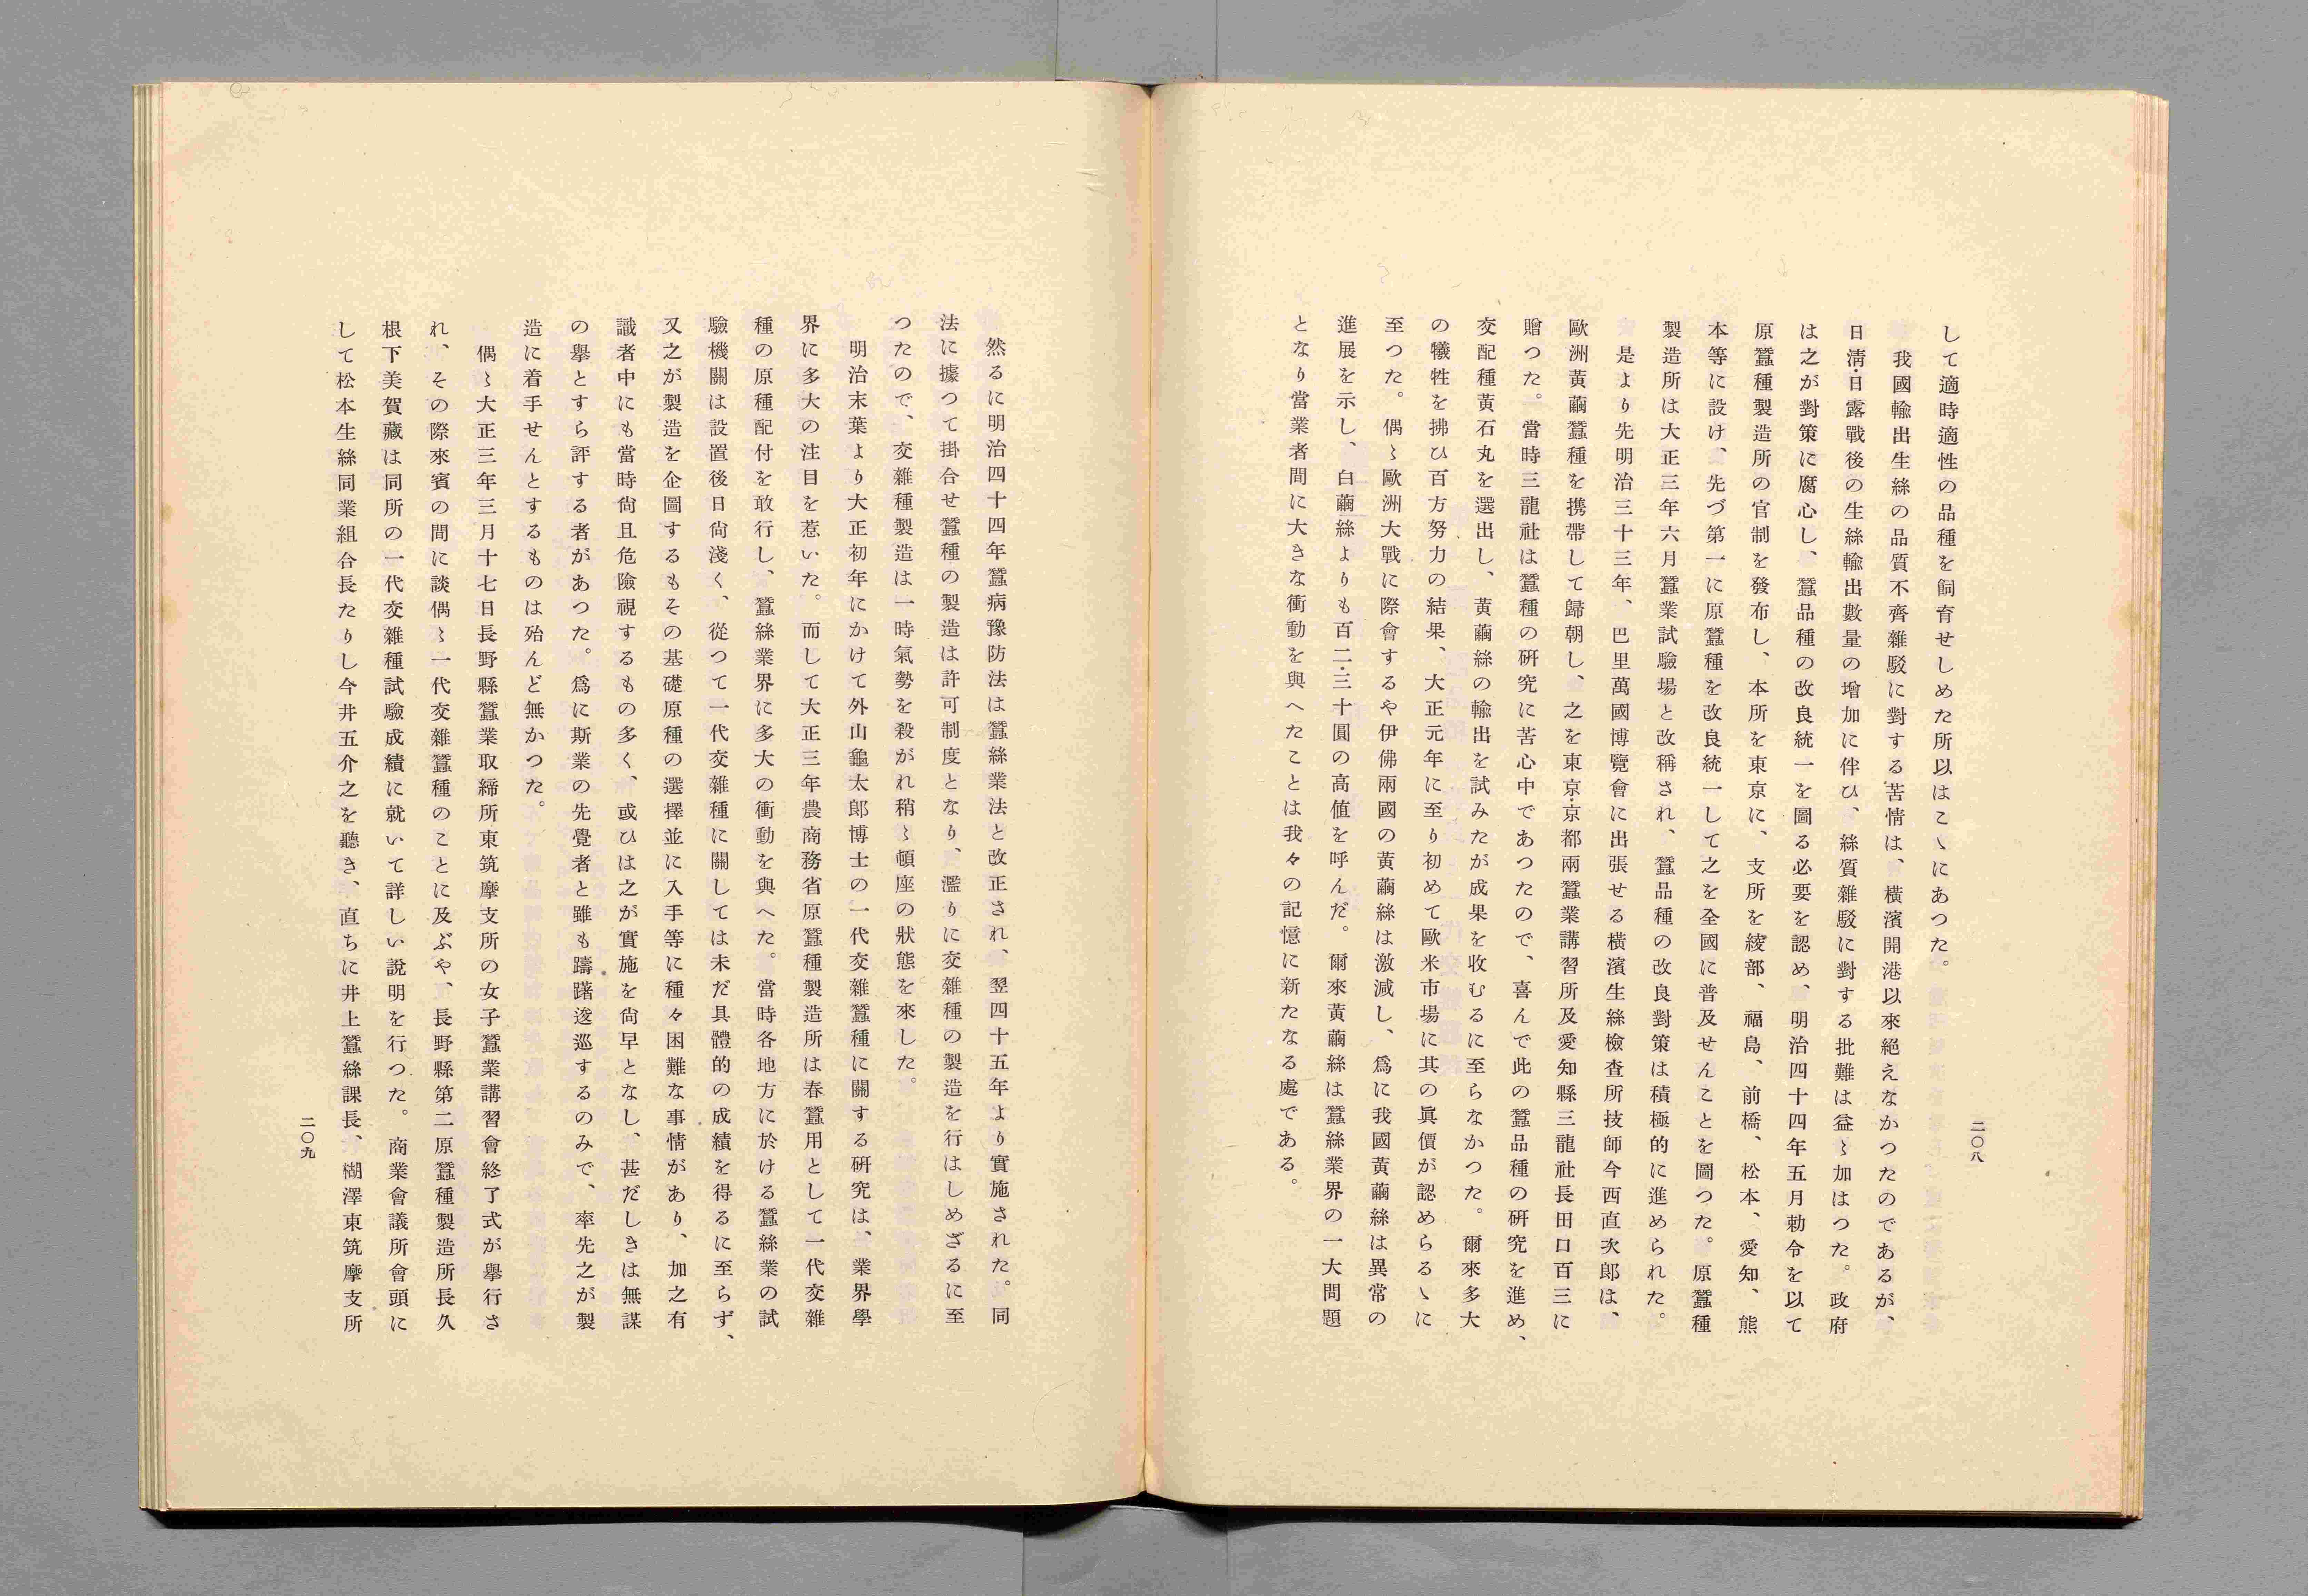 二〇八
して適時適性の品種を飼育せしめた所以はこゝにあつた。
我國輸出生絲の品質不齊雜駁に對する苦情は、橫濱開港以來絕えなかつたのであるが、
日淸・日露戰後の生絲輸出數量の增加に伴ひ、絲質雜駁に對する批難は益〻加はつた。政府
は之が對策に腐心し、蠶品種の改良統一を圖る必要を認め、明治四十四年五月勅令を以て
原蠶種製造所の官制を發布し、本所を東京に、支所を綾部、福島、前橋、松本、愛知、熊
本等に設け、先づ第一に原蠶種を改良統一して之を全國に普及せんことを圖つた。原蠶種
製造所は大正三年六月蠶業試驗場と改稱され、蠶品種の改良對策は積極的に進められた。
是より先明治三十三年、巴里萬國博覽會に出張せる橫濱生絲檢查所技師今西直次郎は、
歐洲黃繭蠶種を携帶して歸朝し、之を東京・京都兩蠶業講習所及愛知縣三龍社長田口百三に
贈つた。當時三龍社は蠶種の硏究に苦心中であつたので、喜んで此の蠶品種の硏究を進め、
交配種黃石丸を選出し、黃繭絲の輸出を試みたが成果を收むるに至らなかつた。爾來多大
の犧牲を拂ひ百方努力の結果、大正元年に至り初めて歐米市場に其の眞價が認めらるゝに
至つた。偶〻歐洲大戰に際會するや伊佛兩國の黃繭絲は激減し、爲に我國黃繭絲は異常の
進展を示し、白繭絲よりも百二・三十圓の高値を呼んだ。爾來黃繭絲は蠶絲業界の一大問題
となり當業者間に大きな衝動を與へたことは我々の記憶に新たなる處である。
然るに明治四十四年蠶病豫防法は蠶絲業法と改正され、翌四十五年より實施された。同
法に據つて掛合せ蠶種の製造は許可制度となり、濫りに交雜種の製造を行はしめざるに至
つたので、交雜種製造は一時氣勢を殺がれ稍〻頓座の狀態を來した。
明治末葉より大正初年にかけて外山龜太郎博士の一代交雜蠶種に關する硏究は、業界學
界に多大の注目を惹いた。而して大正三年農商務省原蠶種製造所は春蠶用として一代交雜
種の原種配付を敢行し、蠶絲業界に多大の衝動を與へた。當時各地方に於ける蠶絲業の試
驗機關は設置後日尙淺く、從つて一代交雜種に關しては未だ具體的の成績を得るに至らず、
又之が製造を企圖するもその基礎原種の選擇並に入手等に種々困難な事情があり、加之有
識者中にも當時尙且危險視するもの多く、或ひは之が實施を尙早となし、甚だしきは無謀
の擧とすら評する者があつた。爲に斯業の先覺者と雖も躊躇逡巡するのみで、率先之が製
造に着手せんとするものは殆んど無かつた。
偶〻大正三年三月十七日長野縣蠶業取締所東筑摩支所の女子蠶業講習會終了式が擧行さ
れ、その際來賓の間に談偶〻一代交雜蠶種のことに及ぶや、長野縣第二原蠶種製造所長久
根下美賀藏は同所の一代交雜種試驗成績に就いて詳しい說明を行つた。商業會議所會頭に
して松本生絲同業組合長たりし今井五介之を聽き、直ちに井上蠶絲課長、楜澤東筑摩支所
二〇九